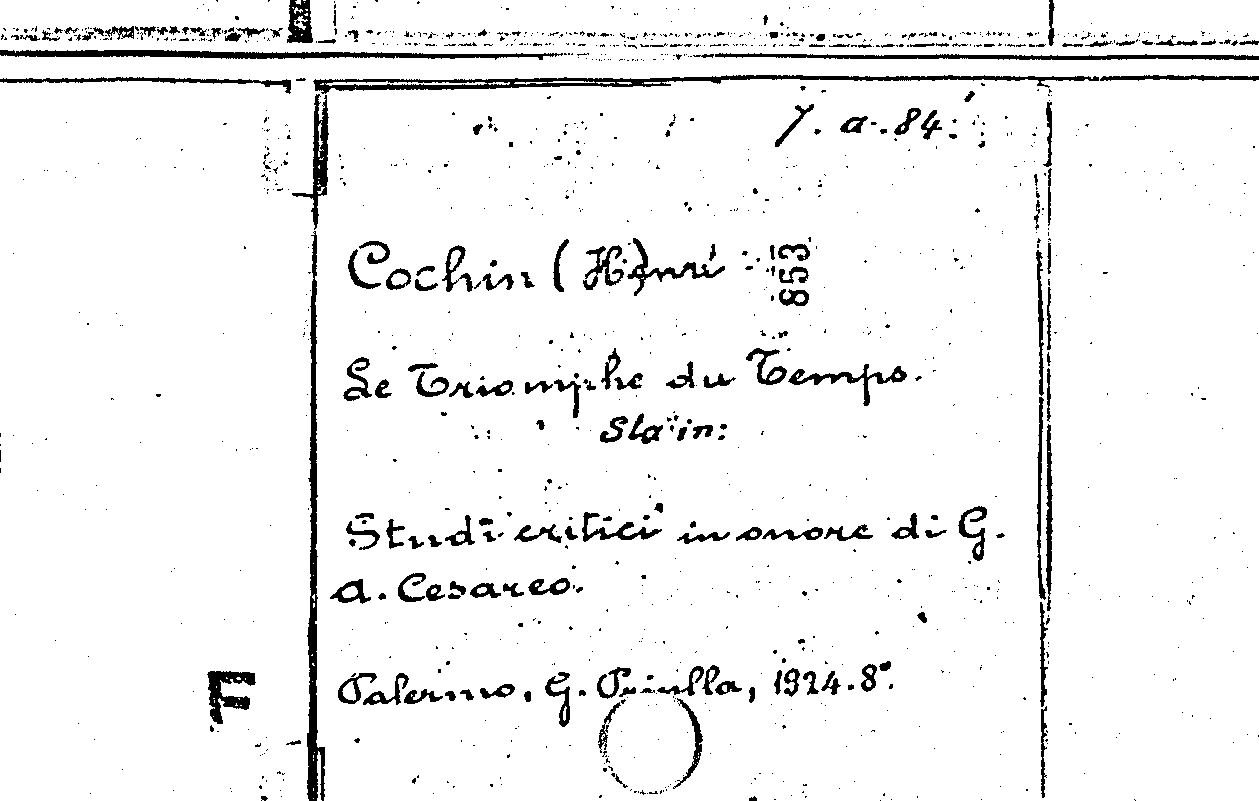 7. a. 84.
Cochin (Henri)
853
Le Triomphe du Temps.
Sta in:
Studi critici in onore di G.
A. Cesareo.
Palermo, G. Priulla, 1924. 8°.
F